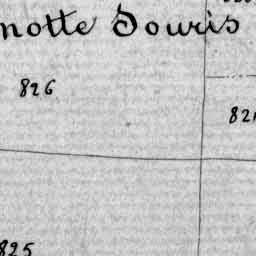 notte Souris
826
82
825